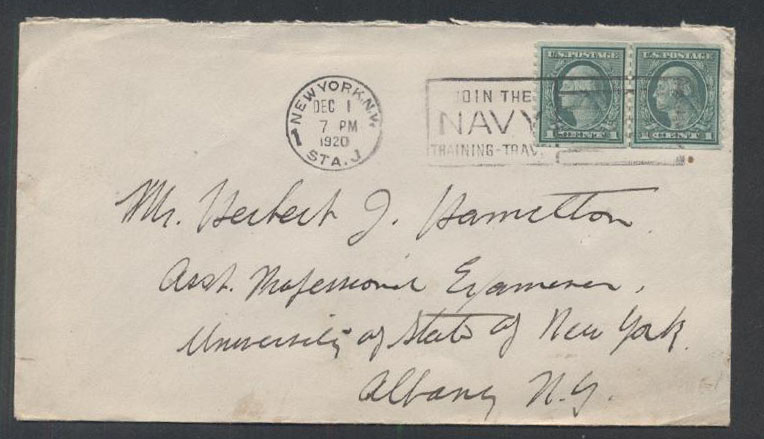 U.S. POSTAGE U.S. POSTAGE
1 CENT 1 CENT 1
NEW YORK, N.Y.
DEC 1
7 PM
1920
STA. J
1
JOIN THE
NAVY
TRAINING-TRAV
Mr. Herbert J. Hamilton
Asst. Professional Examiner,
University of State of New York.
Albany N.Y.